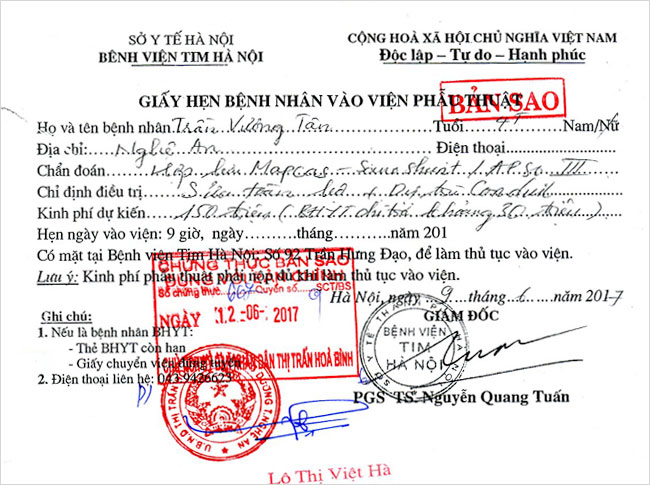 SỞ Y TẾ HÀ NỘI
BỆNH VIỆN TIM HÀ NỘI
CỘNG HOÀ XÃ HỘI CHỦ NGHĨA VIỆT NAM
Độc lập – Tự do – Hạnh phúc
BẢN SAO
GIẤY HẸN BỆNH NHÂN VÀO VIỆN PHẪU THUẬT
Họ và tên bệnh nhân Trần Vương Tân Tuổi 4T Nam/Nữ
Địa chỉ: Nghệ An Điện thoại
Chẩn đoán:
Chỉ định điều trị Sửa toàn bộ
Kinh phí dự kiến 150 triệu (BHYT chi trả khoảng 30 triệu)
Hẹn ngày vào viện: 9 giờ, ngày tháng năm 201
Có mặt tại Bệnh viện Tim Hà Nội: Số 92 Trần Hưng Đạo, để làm thủ tục vào viện.
Lưu ý: Kinh phí phẫu thuật phải nộp đủ khi làm thủ tục vào viện.
CHỨNG THỰC BẢN SAO
ĐÚNG VỚI BẢN CHÍNH
Số chứng thực 667 Quyển số 9 SCT/BS
NGÀY 12 -06- 2017
DÂN THỊ TRẤN HOÀ BÌNH
Hà Nội, ngày 9 tháng 6 năm 2017
GIÁM ĐỐC
SỞ Y TẾ THÀNH PHỐ HÀ NỘI
BỆNH VIỆN
TIM
HÀ NỘI
Ghi chú:
1. Nếu là bệnh nhân BHYT:
- Thẻ BHYT còn hạn
- Giấy chuyển viện đúng tuyến
2. Điện thoại liên hệ: 043.9426623
PGS TS. Nguyễn Quang Tuấn
Lô Thị Việt Hà